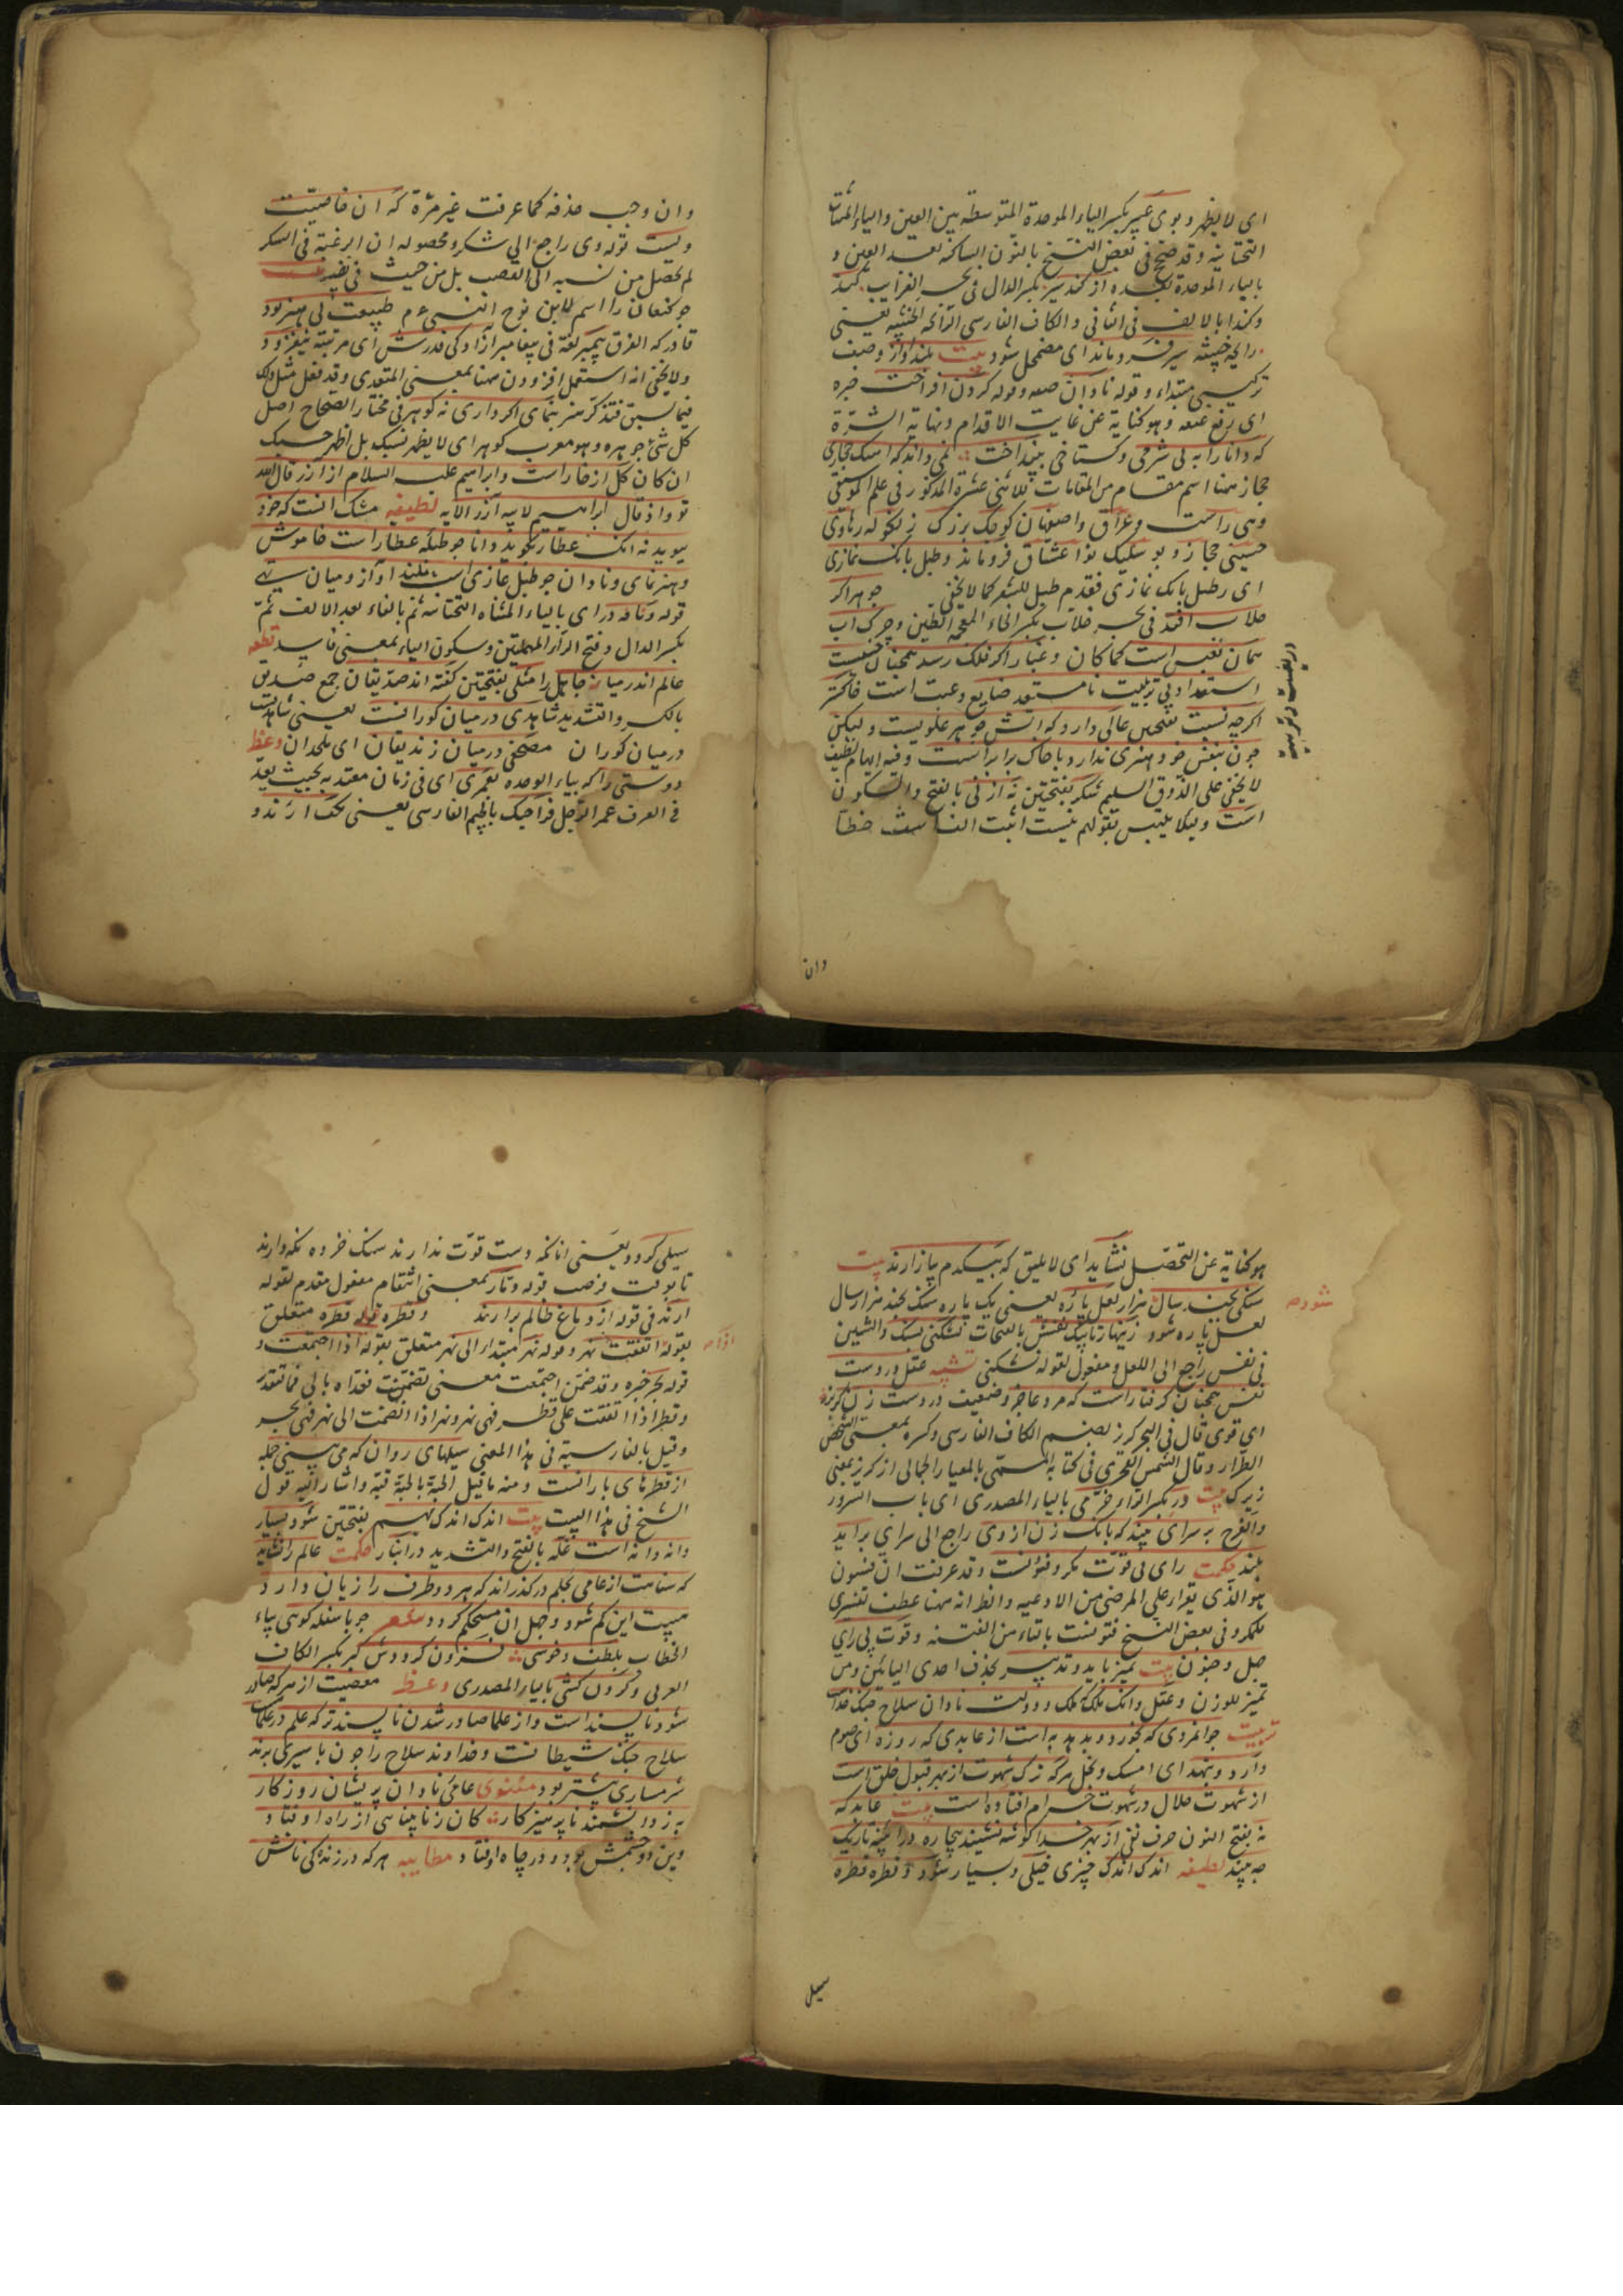 ای لا یظهر و بوی عبیر بکسر الباء الموحدة المتوسطه بین العین والیاء المثناة
التحتانیه وقد صحح فی بعض النسخ بالنون الساکنه بعد العین و
بالباء الموحدة بعده از کند سیر بکسر الدال فی بحر الغرایب کند
وکندا بالالف فی الثانی والکاف الفارسی الرائحه الخبیثه یعنی
رایحه خبیثه سیر فرو ماند ای مضمحل شود بیت بلند آواز وصف
ترکیبی مبتداء و قوله نادان صفه و قوله کردن افراخت خبره
ای رفع عنقه وهو کنایة عن غایت الاقدام ونهایة الشرة
که دانا را به بی شرمی وکستاخی بینداخت نمی داند که آهنک حجازی
حجاز همنا اسم مقام من المقامات الاثنی عشرة المذکور فی علم الموسیقی
وهی راست وعراق واصفهان کوچک بزرک زنکوله رهاوی
حسینی حجاز و بوسلیک نوا عشاق فرو ماند وطبل بانک نمازی
ای رطبل بانک نمازی فقدم طبل للشعر کما لا یخفی جوهر اکر
خلاب افتد فی بحر خلاب بکسر الخاء المعجمه الطین وچرک آب
همان نفیس است کما کان وغبار اکر بفلک رسد همچنان خسیست
استعداد بی تربیت نامستعد ضایع وعبث است خاکستر
اکرچه نسبت بفتحین عالی دارد که آتش جوهر علویست ولیکن
چون بنفس خود هنری ندارد با خاک برابر است وفیه ایهام لطیف
لا یخفی علی الذوق السلیم شکر بفتحتین نه از نی بالفتح والسکون
است ولیلا یلتبس بقولهم نیست اثبت الف است خطا
وان
وان وجب حذفه کما عرفت غیر مرة که آن خاصیت
ویست قوله وی راجع الی شکر و محصوله ان الرغبة فی السکر
لم یحصل من نسبه الی القصب بل من حیث فی نفسه
چو کنعان را اسم لابن نوح النبی ع م طبیعت بی هنر بود
قادر که الفرق پیمبر لغة فی پیغامبر آزادکی قدرش ای مرتبته نیفزود
ولا یخفی انه استعمل افزودن همنا بمعنی المتعدی وقد نقل مثل ذلک
فیما سبق فتذکر هنر بنمای اکر داری نه کوهر فی مختار الصحاح اصل
کل شئ جوهره وهو معرب کوهر ای لا یظهر نسبک بل اظهر حسبک
ان کان کل از خار است و ابراهیم علیه السلام از آزر قال الله
تو واذ قال ابراهیم لابیه آزر الآیه لطیفه مشک آنست که خود
ببوید نه آنک عطار بکوید و دانا چو طبله عطار است خاموش
وهنر نمای و نادان چو طبل غازی است بلند آواز و میان تهی
قوله ویافه درای بالیاء المثناة التحتانیه ثم بالفاء بعد الالف ثم
بکسر الدال وفتح الراء المهملتین وسکون الیاء بمعنی فاسد قطعه
عالم اندر میان جاهل را مثلی بفتحتین کفته اند صدیقان جمع صدیق
بالکسر والتشدید شاهدی در میان کورانست یعنی شاهدیست
درمیان کوران مصحفی درمیان زندیقان ای ملحدان وعظ
دوستی را که بیاء الوحده بعمری ای فی زمان معتد به بحیث یعد
فی العرف عمر الرجل فراچنک بالجیم الفارسی یعنی بچنک آرند و
هو کنایة عن التحصل نشاید ای لا یلیق که بیکدم بیازارند بیت
سنکی بچند سال هزار لعل پاره یعنی یک پاره سنک بچند هزار سال
لعل پاره شود زنهار تا بیک نفسش بالفتحات نشکنی بسنک والشین
فی نفس راجع الی اللعل و مفعول لقوله نشکنی تشبیه عقل در دست
نفس همچنان کرفتار است که مرد عاجز وضعیف در دست زن کربز
ای قوی قال فی البحر کربز بضم الکاف الفارسی وکسره بمعنی الشخص
الطرار وقال الشمس الفخری فی کتابه المسمی بالمعیار الجمالی از کربز بمعنی
زیرک بیت در بکسر الراء خرمی بالیاء المصدری ای باب السرور
والفرح بر سرای ببند که بانک زن از وی راجع الی سرای براید
بلند حکمت رای بی قوت مکر وفسونست وقد عرفت ان فسون
هو الذی یقرأ علی المرضی من الادعیه والظ انه همنا عطف تفسیری
للمکر وفی بعض النسخ فتونست بالتاء من الفتنه وقوت بی رای
جهل وجنون بیت تمیز باید وتدبیر بحذف احدی الیائین من
تمییز للوزن وعقل وانک ملک که ملک و دولت نادان سلاح جنک خداست
تربیت جوانمردی که بخورد و بدهد به است از عابدی که روزه ای صوم
دارد وبنهد ای امسک وبخل هرکه ترک شهوت از بهر قبول خلق است
از شهوت حلال در شهوت حرام افتاده است بیت عابد که
نه بفتح النون حرف نفی از بهر خدا کوشه نشیند بیچاره در آینه تاریک
چه بیند لطیفه اندک اندک چیزی خیلی وبسیار شود و قطره قطره
سیل
شود صح
سیلی کردد یعنی آنانکه دست قوت ندارند سنک خرده نکه دارند
تا بوقت فرصت قوله و ثار بمعنی انتقام مفعول مقدم لقوله
آرند فی قوله از دماغ ظالم برارند وقطره قوله قطره متعلق
بقوله اتفقت نهر و قوله نهر مبتدا الی نهر متعلق بقوله اذا اجتمعت و
قوله بحر خبره وقد ضمن اجتمعت معنی تضمنت فعداه بالی فالتقدیر
وقطر اذا اتفقت علی قطر فهی نهر ونهر اذا انضمت الی نهر فهی بحر
وقیل بالفارسیة فی هذا المعنی سیلهای روان که می بینی جمله
از قطرهای بارانست ومنه ما قیل الحبة بالحبة قبة واشار الیه قول
الشیخ فی هذا البیت بیت اندک اندک بهم بفتحتین شود بسیار
دانه دانه است غله بالفتح والتشدید در انبار حکمت عالم را نشاید
که سفاهت از عامی بحلم در کذراند که هر دو طرف را زیان دارد
هیبت این کم شود وجهل آن مستحکم کردد شعر چو با سفله کوئی بیاء
الخطاب بلطف وخوشی فزون کرددش کبر بکسر الکاف
العربی وکردن کشی بالیاء المصدری وعظ معصیت از هرکه صادر
شود ناپسند است و از علما صادر شدن ناپسندتر که علم
سلاح جنک شیطانست وخداوند سلاح را چون باسیری برند
شرمساری بیشتر بود مثنوی عامی نادان پریشان روزکار
به ز دانشمند ناپرهیزکار کان ز نابینایی از راه اوفتاد
وین دو چشمش بود و در چاه اوفتاد مطایبه هرکه در زندکی نانش